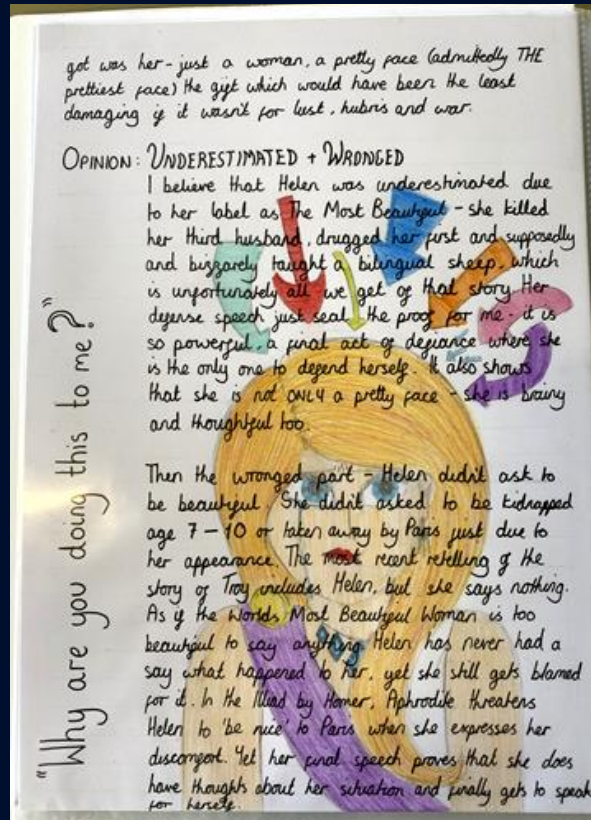 got was her - just a woman, a pretty face (admittedly THE
prettiest face) the gift which would have been the least
damaging if it wasn't for lust, hubris and war.
OPINION: UNDERESTIMATED + WRONGED
I believe that Helen was underestimated due
to her label as The Most Beautiful - she killed
her third husband, drugged her first and supposedly
and bizzarely taught a bilingual sheep, which
is unfortunately all we get of that story. Her
defense speech just seal the proof for me - it is
so powerful, a final act of defiance where she
is the only one to defend herself. It also shows
that she is not ONLY a pretty face - she is brainy
and thoughtful too.
Then the wronged part - Helen didn't ask to
be beautiful. She didn't asked to be kidnapped
age 7-10 or taken away by Paris just due to
her appearance. The most recent retelling of the
story of Troy includes Helen, but she says nothing.
As if the Worlds Most Beautiful Woman is too
beautiful to say anything. Helen has never had a
say what happened to her, yet she still gets blamed
for it. In the Illiad by Homer, Aphrodite threatens
Helen to 'be nice' to Paris when she expresses her
discomfort. Yet her final speech proves that she does
have thoughts about her situation and finally gets to speak
for herself.
"Why are you doing this to me?"